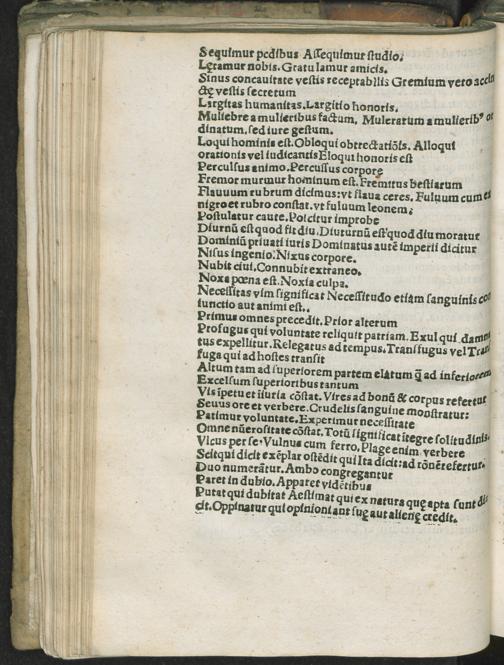 Sequimur pedibus Aſſequimur ſtudio.
Lętamur nobis. Gratulamur amicis.
Sinus concauitate veſtis receptabilis Gremium vero accin
ctę veſtis ſecretum
Largitas humanitas. Largitio honoris.
Muliebre a mulieribus factum, Muleratum a mulieribꝰ or
dinatum, ſed iure geſtum.
Loqui hominis eſt. Obloqui obtrectatiōis. Alloqui
orationis vel iudicantis Eloqui honoris eſt
Perculſus animo. Percuſſus corpore
Fremor murmur hominum eſt. Fremitus beſtiarum
Flauuum rubrum dicimus: vt flaua ceres. Fuluum cum ex
nigro et rubro conſtat. vt fuluum leonem;
Poſtulatur caute. Poſcitur improbe
Diurnū eſt quod fit diu. Diuturnū eſt quod diu moratur
Dominiū priuati iuris Dominatus autē imperii dicitur
Niſus ingenio: Nixus corpore.
Nubit ciui. Connubit extraneo.
Noxa pœna eſt. Noxia culpa.
Neceſſitas vim ſignificat Neceſſitudo etiam ſanguinis con
iunctio aut animi eſt..
Primus omnes precedit. Prior alterum
Profugus qui voluntate reliquit patriam. Exul qui damna
tus expellitur. Relegatus ad tempus. Tranſfugus vel Tranſ
fuga qui ad hoſtes tranſit
Altum tam ad ſuperiorem partem elatum q̄ ad inferiorem
Excelſum ſuperioribus tantum
Vis īpetu et iiuria cōſtat. Vires ad bonū & corpus refertur
Seuus ore et verbere. Crudelis ſanguine monſtratur:
Patimur voluntate. Experimur neceſſitate
Omne nūeroſitate cōſtat. Totū ſignificat itegre ſolitudinis.
Vicus per ſe. Vulnus cum ferro. Plage enim verbere
Scit qui dicit exēplar oſtēdit qui Ita dicit: ad rōnē refertur.
Duo numerātur. Ambo congregantur
Paret in dubio. Apparet vidētibus
Putat qui dubitat Aeſtimat qui ex natura quę apta ſunt di
cit. Oppinatur qui opinioni ant ſuę aut alienę credit.